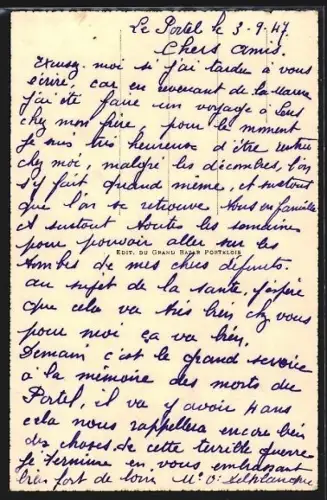 Le Portel le 3-9-47
Chers amis.
Excusez-moi si j'ai tardée à vous
écrire, car en revenant de la Marne
j'ai été faire un voyage à Lens
chez mon frère, pour le moment
je suis très heureuse d'être rentrée
chez moi, malgré les décombres, l'on
s'y fait quand même, et surtout
que l'on se retrouve tous en famille
et surtout toutes les semaines
pour pouvoir aller sur les
EDIT. DU GRAND BAZAR PORTELOIS
tombes de mes chers défunts.
au sujet de la santé, j'espère
que cela va très bien chez vous
pour moi ça va bien,
Demain c'est le grand service
à la mémoire des morts du
Portel, il va y avoir 4 ans
cela nous rappellera encore bien
des choses de cette terrible guerre
Je termine en vous embrassant
bien fort de loin